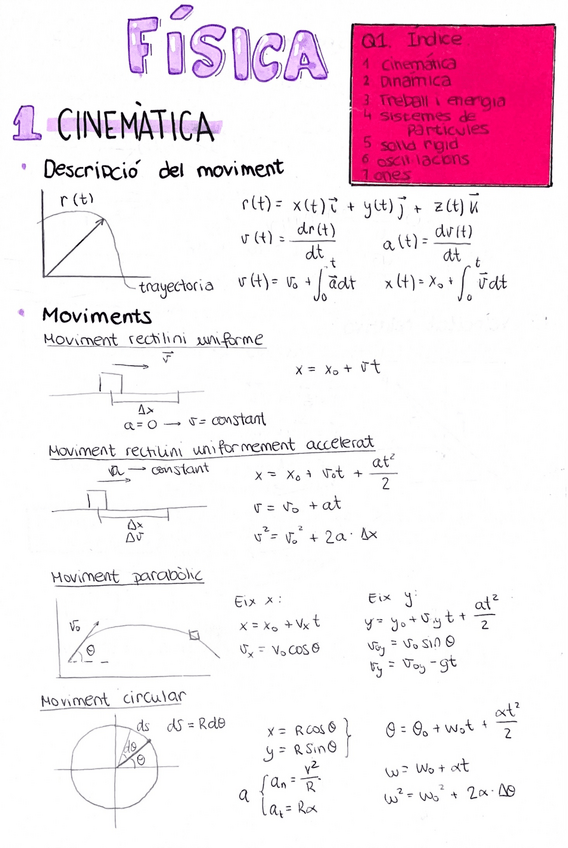 FÍSICA
Q1. Índice
1 Cinemática
2 Dinàmica
3 Treball i energia
4 Sistemes de
partícules
5 sòlid rígid
6 oscil·lacions
7 ones
1 CINEMÀTICA
• Descripció del moviment
r(t)
trayectoria
r(t) = x(t) i⃗ + y(t) j⃗ + z(t) k⃗
v(t) = dr(t)/dt a(t) = dv(t)/dt
v(t) = v₀ + ∫₀ᵗ a⃗dt x(t) = x₀ + ∫₀ᵗ v⃗dt
• Moviments
Moviment rectilini uniforme
v⃗
Δx
a=0 → v = constant
x = x₀ + vt
Moviment rectilini uniformement accelerat
a → constant
Δx
Δv
x = x₀ + v₀t + at²/2
v = v₀ + at
v² = v₀² + 2a · Δx
Moviment parabòlic
v₀
θ
Eix x:
x = x₀ + vₓt
vₓ = v₀cosθ
Eix y:
y = y₀ + v₀yt + at²/2
v₀y = v₀ sinθ
vy = v₀y - gt
Moviment circular
ds
dθ
θ
ds = Rdθ
x = Rcosθ
y = Rsinθ
a { aₙ = v²/R
aₜ = Rα
θ = θ₀ + w₀t + αt²/2
w = w₀ + αt
w² = w₀² + 2α · Δθ